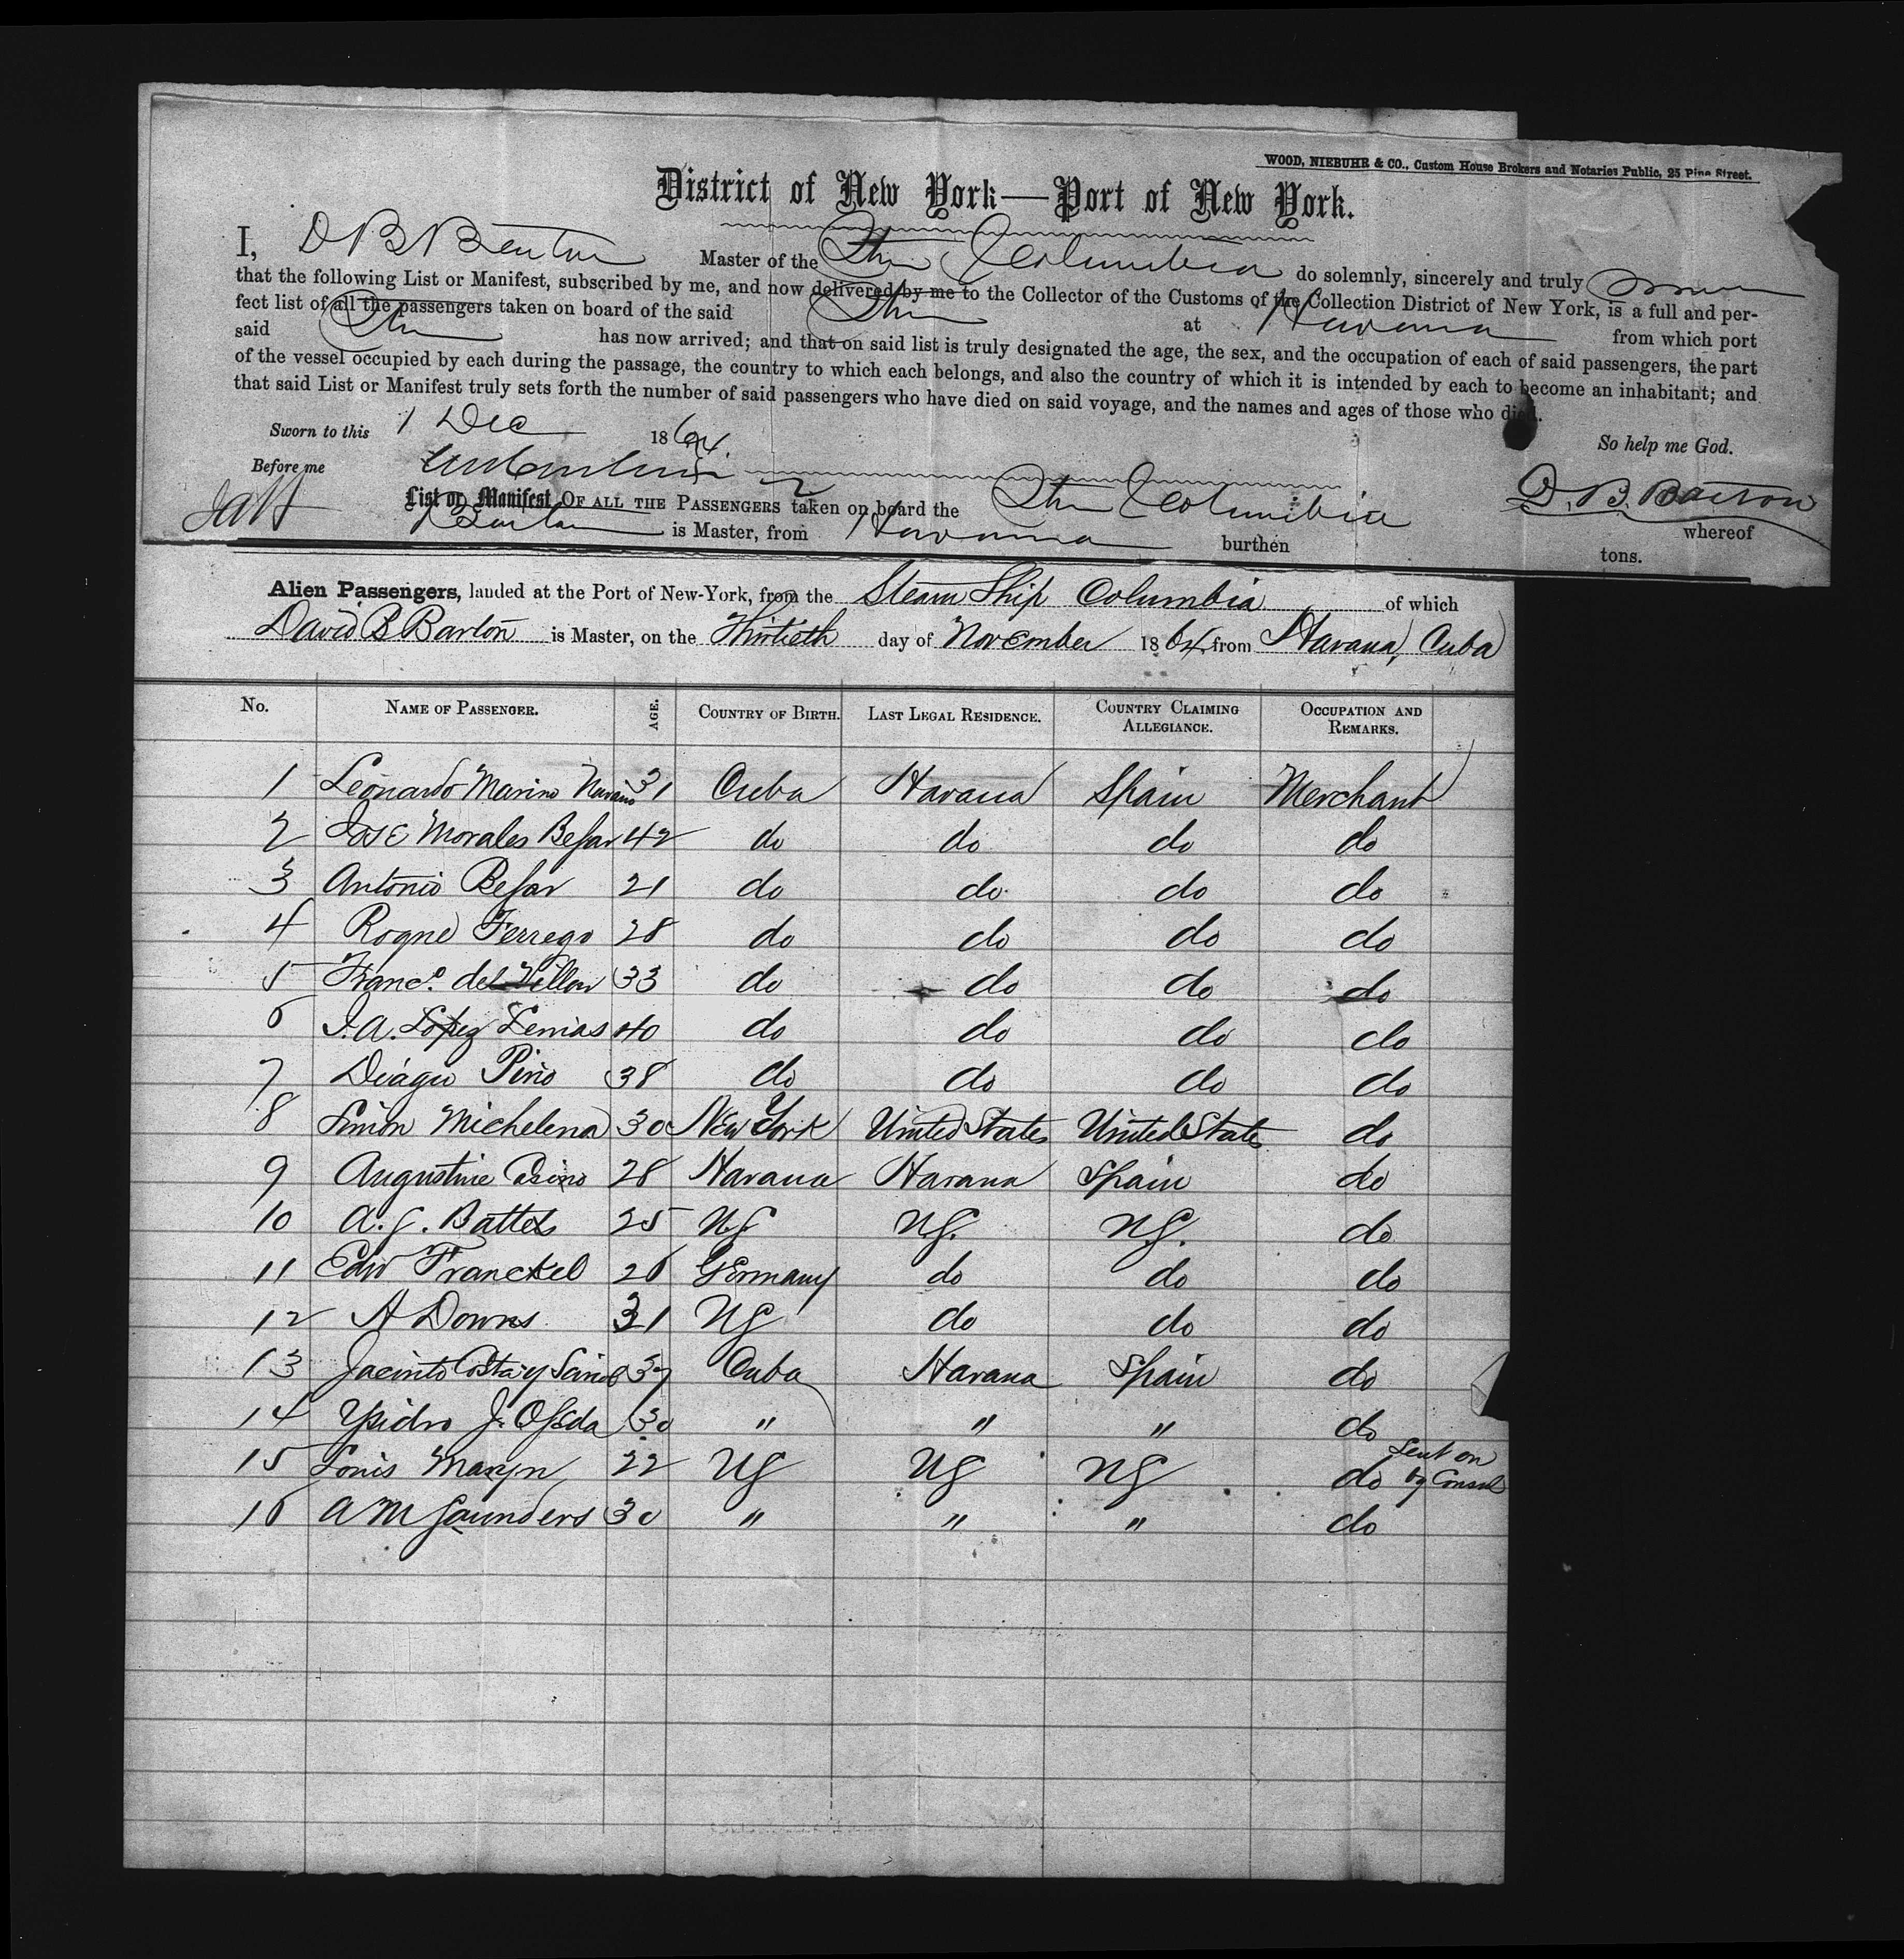 WOOD, NIEBUHR & CO., Custom House Brokers and Notaries Public, 25 Pine Street.
District of New York—Port of New York.
I, D B Barton Master of the Str Columbia do solemnly, sincerely and truly swear
that the following List or Manifest, subscribed by me, and now delivered by me to the Collector of the Customs of the Collection District of New York, is a full and per-
fect list of all the passengers taken on board of the said Str at Havana from which port
said Str has now arrived; and that on said list is truly designated the age, the sex, and the occupation of each of said passengers, the part
of the vessel occupied by each during the passage, the country to which each belongs, and also the country of which it is intended by each to become an inhabitant; and
that said List or Manifest truly sets forth the number of said passengers who have died on said voyage, and the names and ages of those who died.
Sworn to this 1 Dec 1864. So help me God.
Before me D. B. Barton
List or Manifest OF ALL THE PASSENGERS taken on board the Str Columbia whereof
D Barton is Master, from Havana burthen tons.
Alien Passengers, landed at the Port of New-York, from the Steam Ship Columbia of which
David B Barton is Master, on the Thirtieth day of November 1864 from Havana, Cuba
No. NAME OF PASSENGER. AGE. COUNTRY OF BIRTH. LAST LEGAL RESIDENCE. COUNTRY CLAIMING ALLEGIANCE. OCCUPATION AND REMARKS.
1 Leonardo Marino Navaro 31 Cuba Havana Spain Merchant
2 Jose Morales Befar 42 do do do do
3 Antonio Befar 21 do do do do
4 Roque Ferrego 28 do do do do
5 Franco. del Villar 33 do do do do
6 J. A. Lopez Lenias 40 do do do do
7 Diágu Pino 38 do do do do
8 Simon Michelena 30 New York United States United States do
9 Augustine Pino 28 Havana Havana Spain do
10 A. J. Battels 25 US US. US. do
11 Edw Franckel 26 Germany do do do
12 A Downs 31 US do do do
13 Jacinto Costa y 37 Cuba Havana Spain do
14 Ysidro J. Ojeda 30 " " " do
15 Louis Maryn 22 US US US do Sent on by Consul
16 A M Saunders 30 " " " do